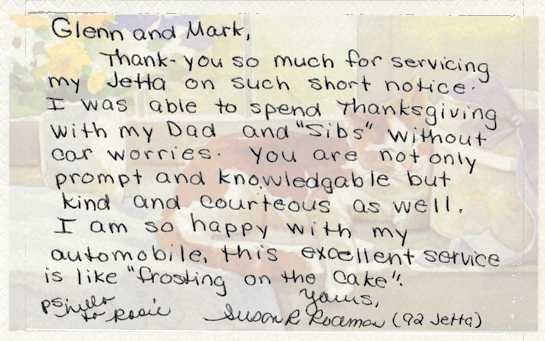 Glenn and Mark,
Thank-you so much for servicing
my Jetta on such short notice.
I was able to spend Thanksgiving
with my Dad and "Sibs" without
car worries. You are not only
prompt and knowledgable but
kind and courteous as well.
I am so happy with my
automobile, this excellent service
is like "frosting on the cake".
Yours,
Susan R (92 Jetta)
PS hello
to Rosie